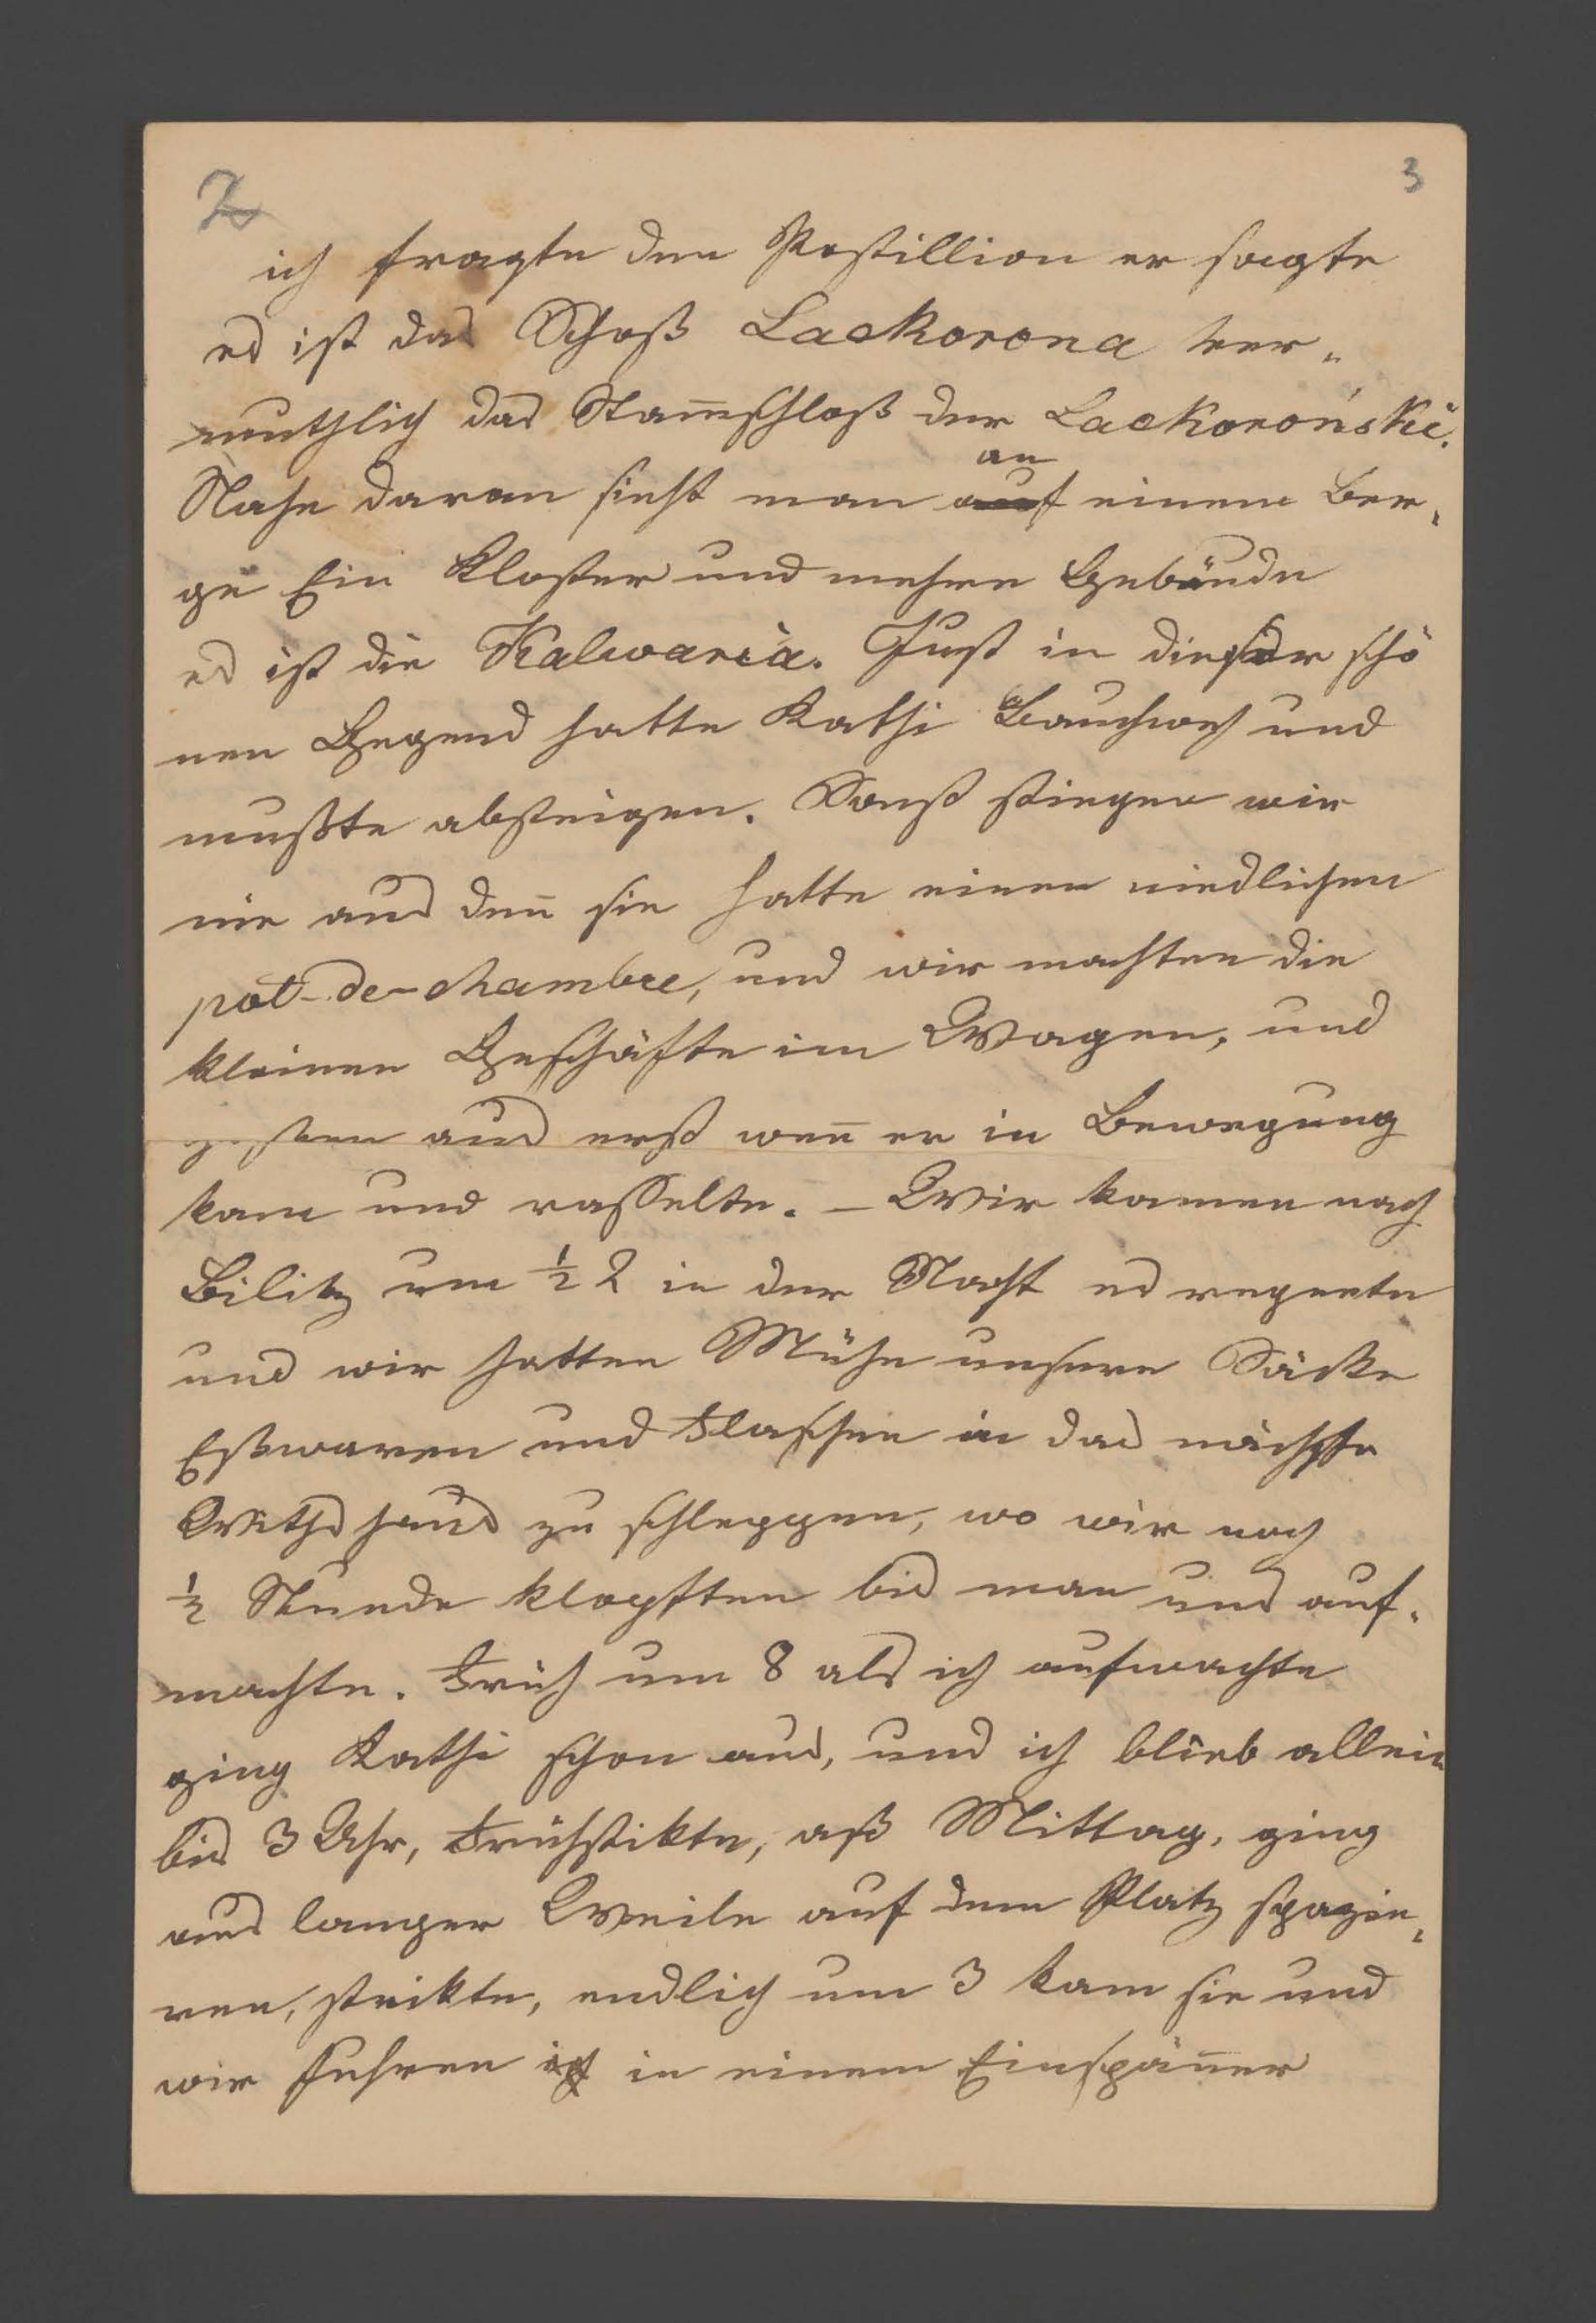 2 3
ich fragte den Postillion er sagte
es ist das Schoß Lackorona ver„
muthlich das Stam̅schloß der Lackoroński.
an
Nahe daran sieht man auf einem Ber„
ge Ein Kloster und mehre Gebäude
es ist die Kalwaria. Just in dieser schö
nen Gegend hatte Kathi Bauchweh und
mußte absteigen. Sonst stiegen wir
nie aus den̅ sie hatte einen niedlichen
pot-de-chambre, und wir machten die
kleinen Geschäfte im Wagen, und
gossen aus erst wen̅ er in Bewegung
kam und rasselte. – Wir kamen nach
Bilitz um ½ 2 in der Nacht es regnete
und wir hatten Mühe unsere Säcke
Eßwaren und Flaschen in das nächste
Withshaus zu schleppen, wo wir noch
½ Stunde klopften bis man uns auf„
machte. Früh um 8 als ich aufwachte
ging Kathi schon aus, und ich blieb allein
bis 3 Uhr, Frühstikte, aß Mittag, ging
aus langer Weile auf dem Platz spazie„
ren, strikte, endlich um 3 kam sie und
wir fuhren in einem Einspän̅er